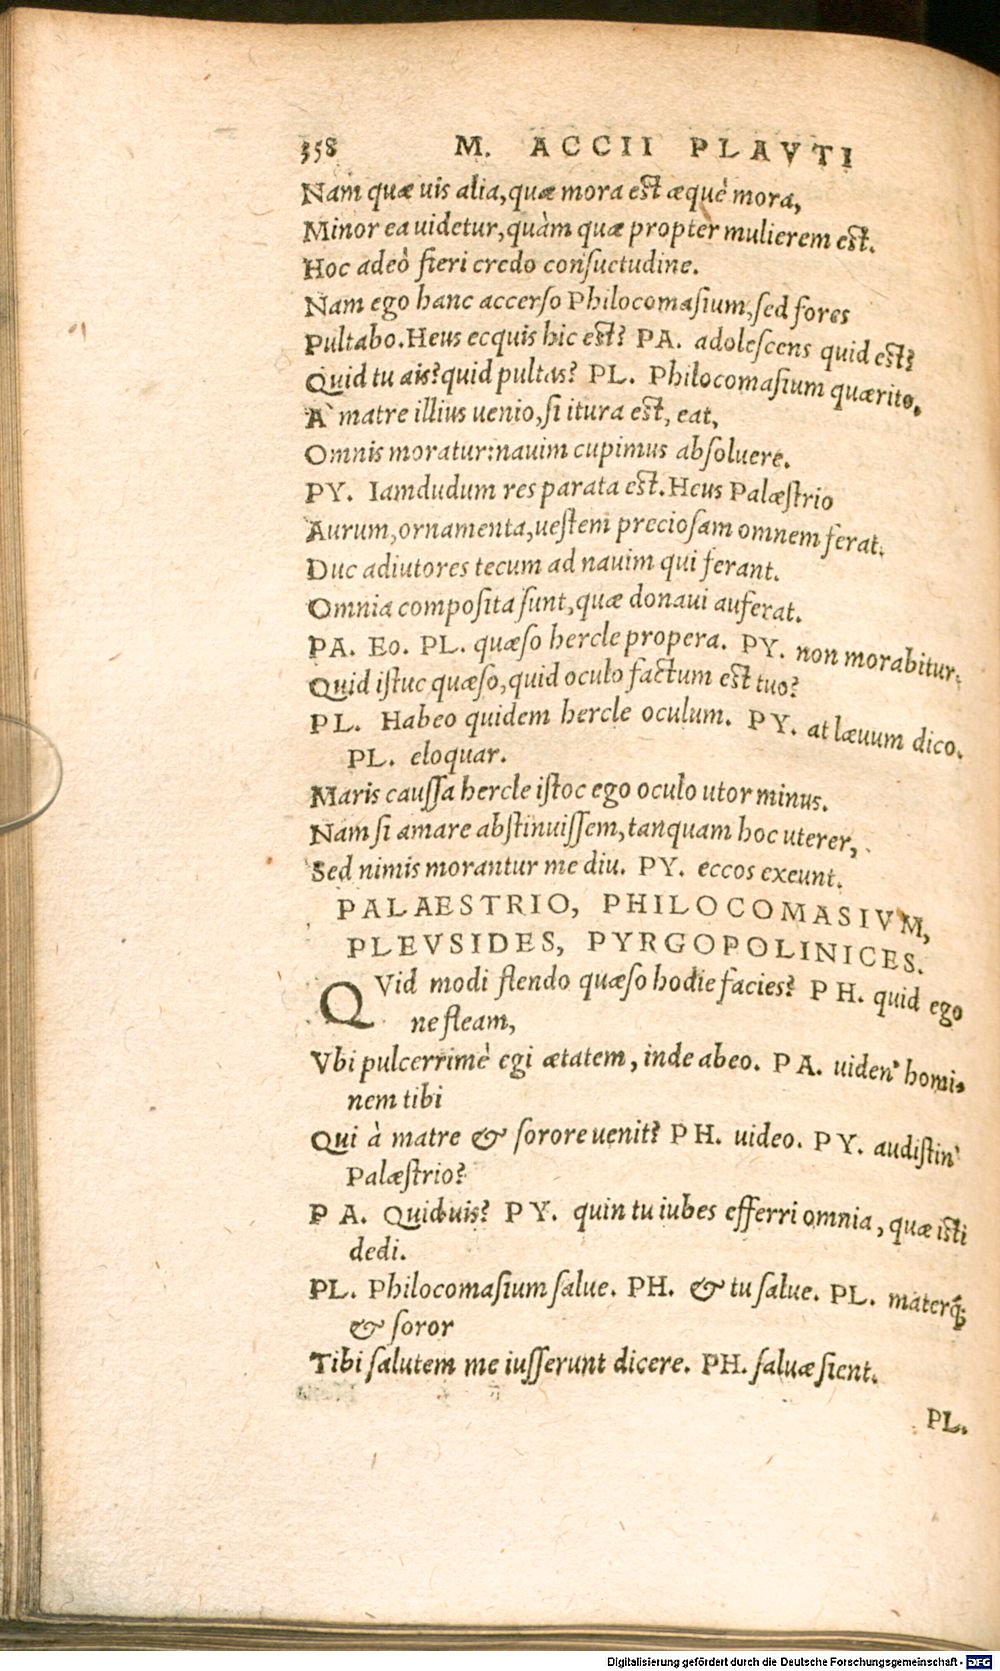 358 M. ACCII PLAVTI
Nam quæ uis alia, quæ mora est æquè mora,
Minor ea uidetur, quàm quæ propter mulierem est.
Hoc adeò fieri credo consuetudine.
Nam ego hanc accerso Philocomasium, sed fores
Pultabo. Heus ecquis hic est? PA. adolescens quid est?
Quid tu ais? quid pultas? PL. Philocomasium quærito.
A` matre illius uenio, si itura est, eat,
Omnis moratur: nauim cupimus absoluere.
PY. Iamdudum res parata est. Heus Palæstrio
Aurum, ornamenta, uestem preciosam omnem ferat.
Duc adiutores tecum ad nauim qui ferant.
Omnia composita sunt, quæ donaui auferat.
PA. Eo. PL. quæso hercle propera. PY. non morabitur.
Quid istuc quæso, quid oculo factum est tuo?
PL. Habeo quidem hercle oculum. PY. at læuum dico.
PL. eloquar.
Maris caussa hercle istoc ego oculo utor minus.
Nam si amare abstinuissem, tanquam hoc uterer,
Sed nimis morantur me diu. PY. eccos exeunt.
PALAESTRIO, PHILOCOMASIVM,
PLEVSIDES, PYRGOPOLINICES.
QVid modi flendo quæso hodie facies? PH. quid ego
ne fleam,
Vbi pulcerrimè egi ætatem, inde abeo. PA. uiden' homi-
nem tibi
Qui à matre & sorore uenit? PH. uideo. PY. audistin'
Palæstrio?
PA. Quid uis? PY. quin tu iubes efferri omnia, quæ isti
dedi.
PL. Philocomasium salue. PH. & tu salue. PL. materq́;
& soror
Tibi salutem me iusserunt dicere. PH. saluæ sient.
PL.
Digitalisierung gefördert durch die Deutsche Forschungsgemeinschaft - DFG